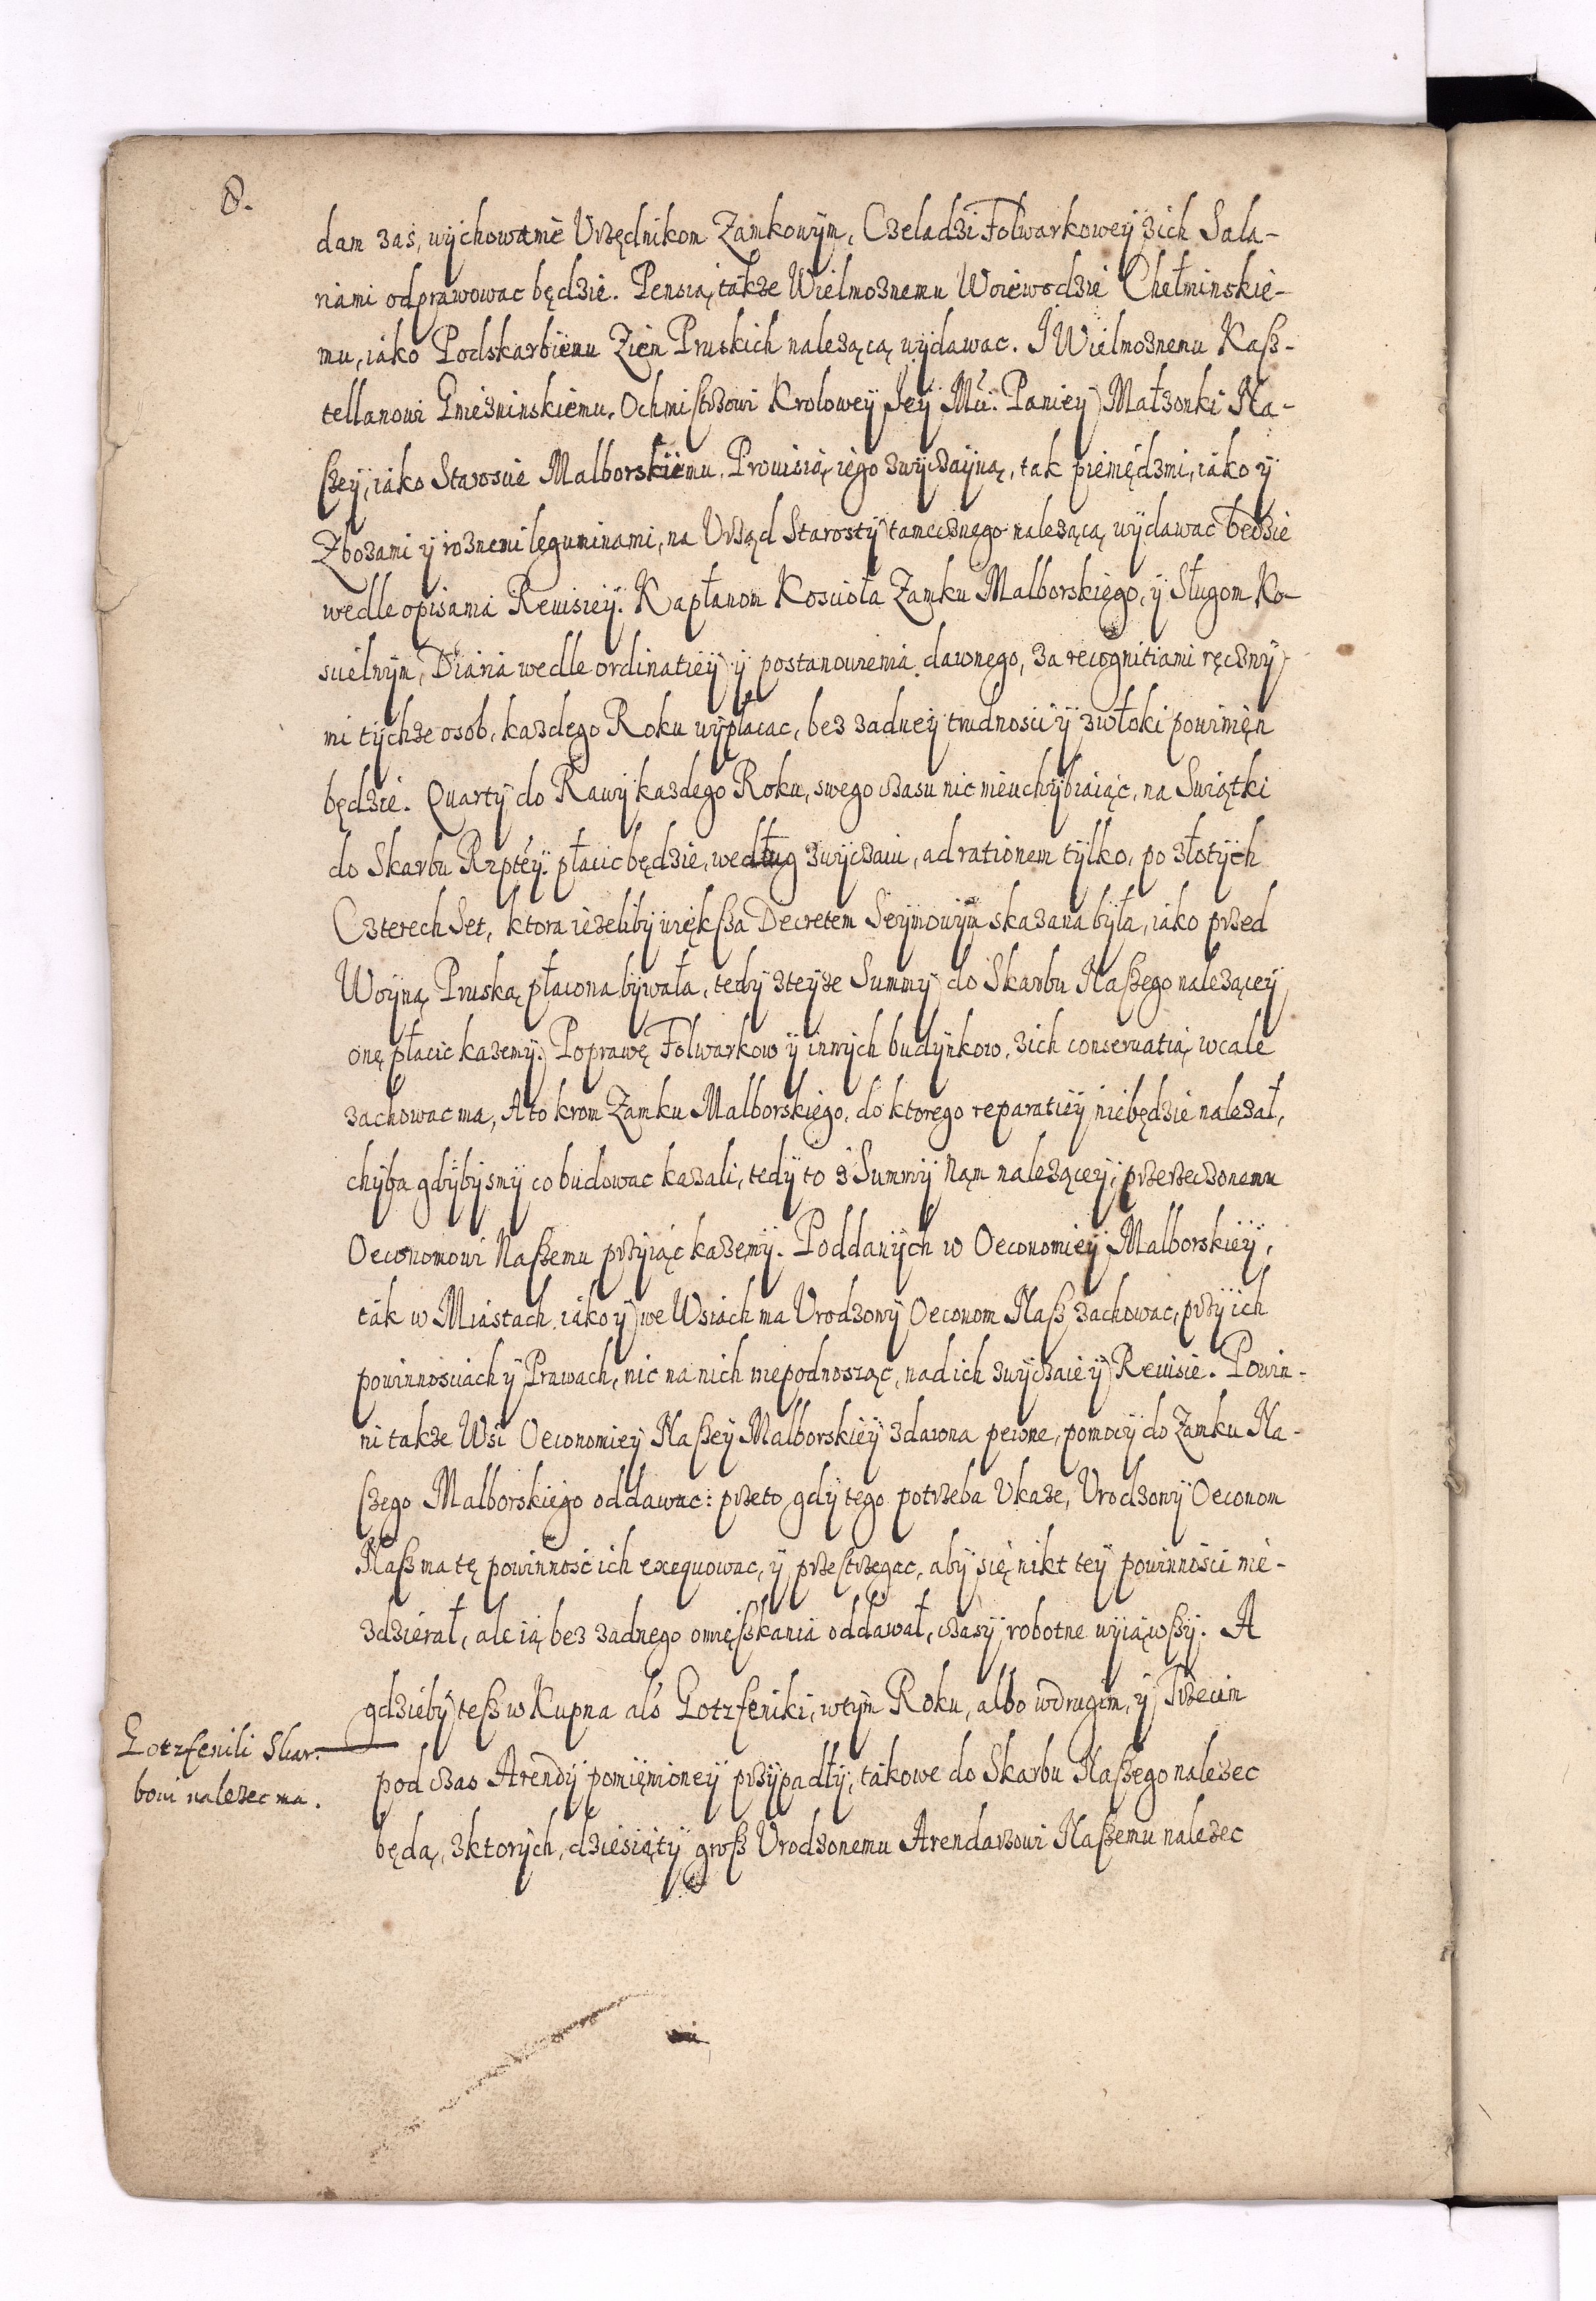 8.
dam zas, wychowanie Vrzędnikom Zamkowym, Czeladzi Folwarkowey z ich Sala-
riami odprawowac będzie. Pensią, także Wielmoznemu Woiewodzie Chełminskie-
mu, iako Podskarbiemu Ziem Pruskich nalezącą wydawac. J Wielmoznemu Kasz-
tellanowi Gniezninskiemu, Ochmistrzowi Krolowey Jey Mci. Paniey Małzonki Na-
szey, iako Staroscie Malborskiemu, Prowisią iego zwyczayną, tak pieniędzmi, iako y
Zbozami y roznemi leguminami, na Vrząd Starosty tamecznego nalezącą, wydawac będzie
wedle opisania Reuisiey. Kapłanom Koscioła Zamku Malborskiego, y Sługom Ko-
scielnym, Diaria wedle ordinatiey y postanowienia dawnego, za recognitiami ręczny-
mi tychze osob, kazdego Roku wypłacac, bez zadney trudnosci y zwłoki powinien
będzie. Quarty do Rawy kazdego Roku, swego czasu nic nieuchybiaiąc, na Swiątki
do Skarbu Rzptey. płacic będzie, według zwyczaiu, ad rationem tylko, po złotych
Czterech Set, ktora iezeliby większa Decretem Seymowym skazana była, iako przed
Woyną Pruską płacona bywała, tedy zteyze Summy do Skarbu Naszego nalezącey
onę płacic kazemy. Poprawę Folwarkow y innych budynkow, z ich conseruatią wcale
zachowac ma, A to krom Zamku Malborskiego, do ktorego reparatiey niebędzie nalezał,
chyba gdybysmy co budowac kazali, tedy to z Summy Nam nalezącey, przerzeczonemu
Oeconomowi Naszemu przyiąc kazemy. Poddanych w Oeconomiey Malborskiey,
tak w Miastach iako y we Wsiach ma Vrodzony Oeconom Nasz zachowac, przy ich
powinnosciach y Prawach, nic na nich niepodnosząc, nad ich zwyczaie y Reuisie. Powin-
ni takze Wsi Oeconomiey Naszey Malborskiey zdawna pewne, pomocy do Zamku Na-
szego Malborskiego oddawac: przeto gdy tego potrzeba Vkaze, Vrodzony Oeconom
Nasz ma tę powinnosć ich exequowac, y przestrzegac, aby się nikt tey powinnosci nie-
zdzierał, ale ią bez zadnego omięszkania oddawał, czasy robotne wyiąwszy. A
gdzieby tesz w Kupna als Gotzfeniki, wtym Roku, albo wdrugim, y Trzecim
pod czas Arendy pomienioney przypadły, takowe do Skarbu Naszego nalezec
będą, z ktorych, dziesiąty grosz Vrodzonemu Arendarzowi Naszemu nalezec
Gotzfenili Skar.
bowi nalezec ma.